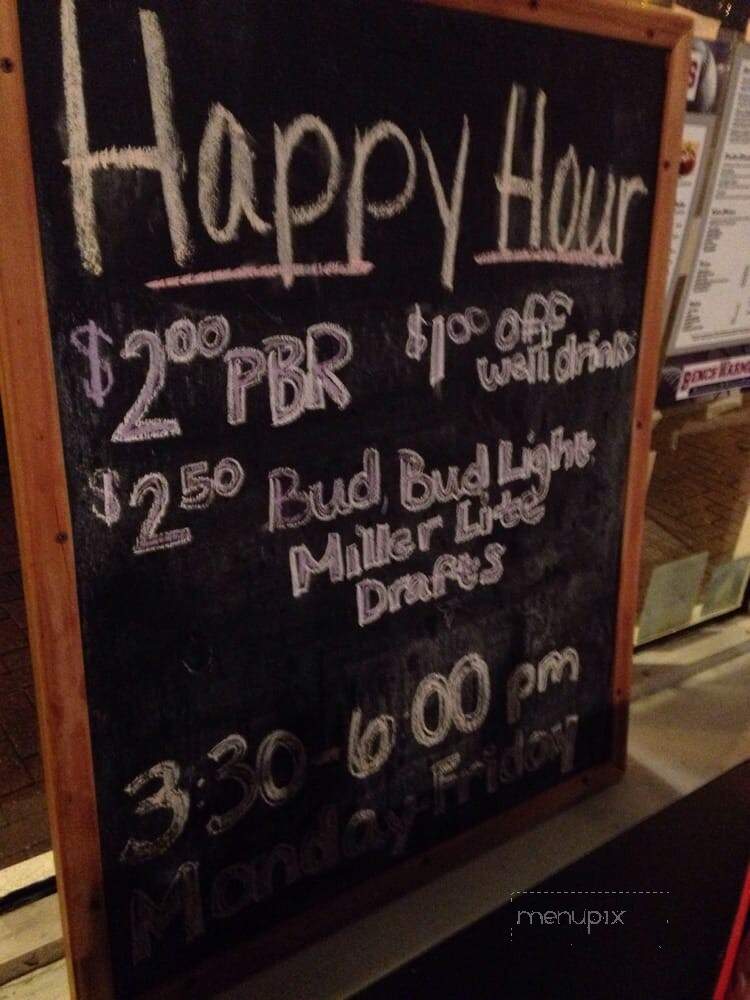 Happy Hour
$2.00 PBR
$1.00 off
well drinks
$2.50 Bud, Bud Light,
Miller Lite
Drafts
3:30-6:00 pm
Monday-Friday
menupix